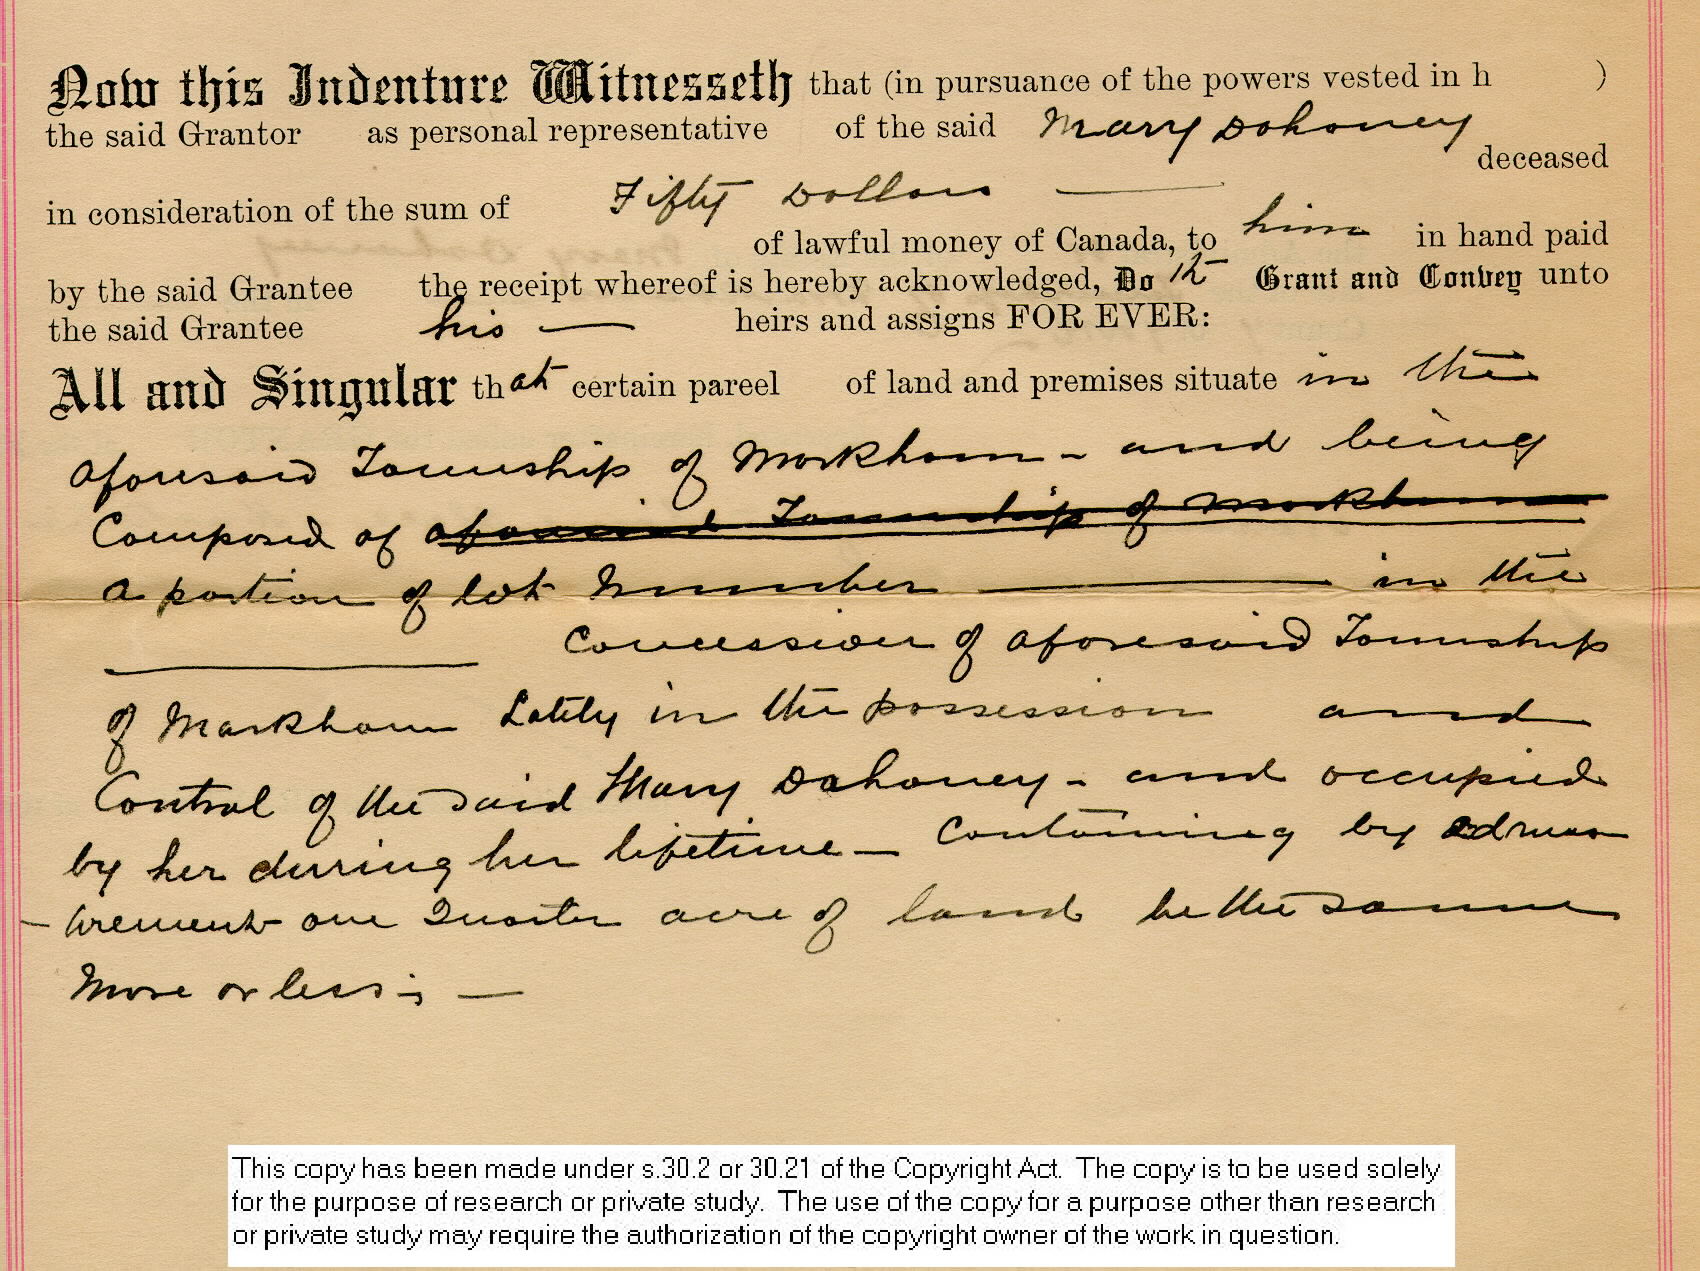 Now this Indenture Witnesseth that (in pursuance of the powers vested in h )
the said Grantor as personal representative of the said Mary Dohoney
deceased
in consideration of the sum of Fifty Dollars —
of lawful money of Canada, to him in hand paid
by the said Grantee the receipt whereof is hereby acknowledged, Do th Grant and Convey unto
the said Grantee his — heirs and assigns FOR EVER:
All and Singular that certain parcel of land and premises situate in the
aforesaid Township of Markham - and being
Composed of aforesaid Township of Markham
a portion of lot Number ——— in the
——— Concession of aforesaid Township
of Markham Lately in the possession and
Control of the said Mary Dahoney - and occupied
by her during her lifetime — Containing by
one Quarter acre of land be the same
More or less; —
This copy has been made under s.30.2 or 30.21 of the Copyright Act. The copy is to be used solely
for the purpose of research or private study. The use of the copy for a purpose other than research
or private study may require the authorization of the copyright owner of the work in question.